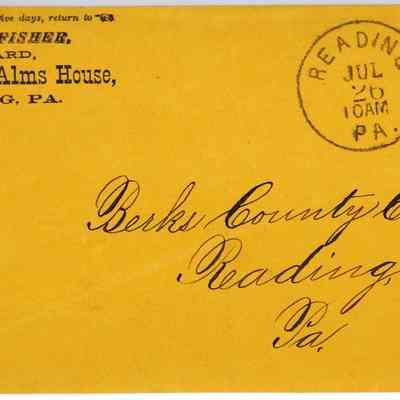 five days, return to
FISHER,
ARD,
Alms House,
G, PA.
READING
JUL
26
10AM
PA.
Berks County C
Reading,
Pa.